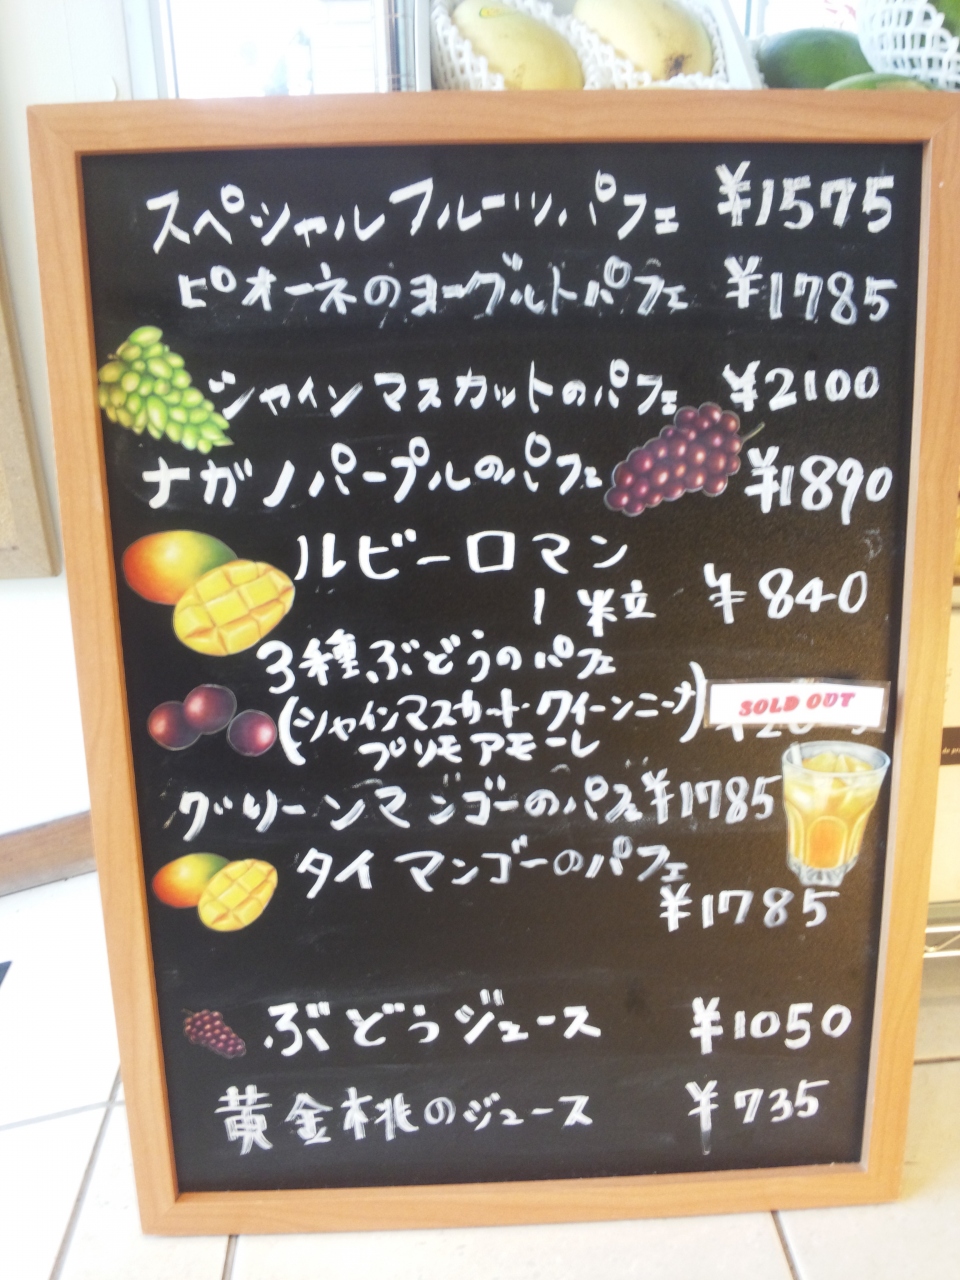 スペシャルフルーツパフェ ¥1575
ピオーネのヨーグルトパフェ ¥1785
シャインマスカットのパフェ ¥2100
ナガノパープルのパフェ ¥1890
ルビーロマン
1粒 ¥840
3種ぶどうのパフェ
(シャインマスカット・クイーンニーナ) SOLD OUT
プリモアモーレ
グリーンマンゴーのパフェ ¥1785
タイマンゴーのパフェ
¥1785
ぶどうジュース ¥1050
黄金桃のジュース ¥735